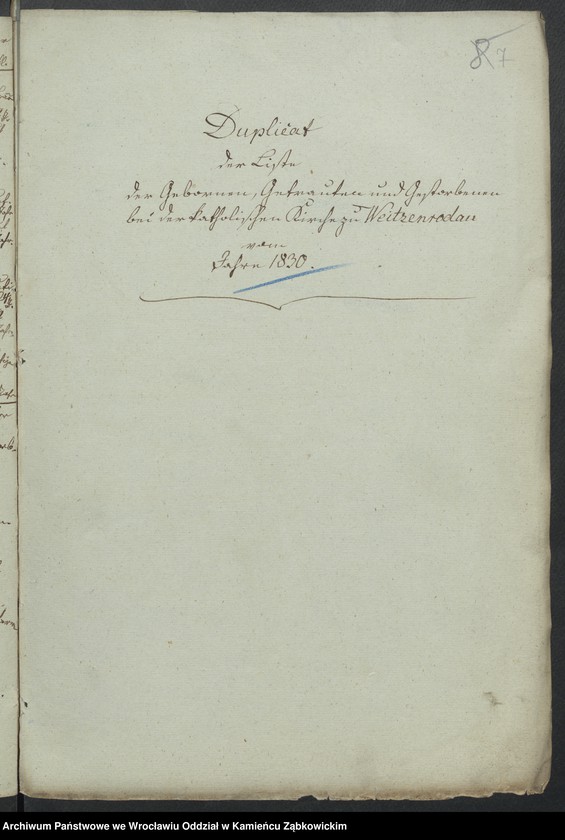 87
Duplicat
der Liste
der Gebornen, Getrauten und Gestorbenen
bei der katholischen Kirche zu Weitzenrodau
vom
Jahre 1830.
Archiwum Państwowe we Wrocławiu Oddział w Kamieńcu Ząbkowickim